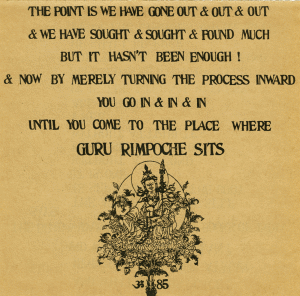 THE POINT IS WE HAVE GONE OUT & OUT & OUT
& WE HAVE SOUGHT & SOUGHT & FOUND MUCH
BUT IT HASN'T BEEN ENOUGH!
& NOW BY MERELY TURNING THE PROCESS INWARD
YOU GO IN & IN & IN
UNTIL YOU COME TO THE PLACE WHERE
GURU RIMPOCHE SITS
85